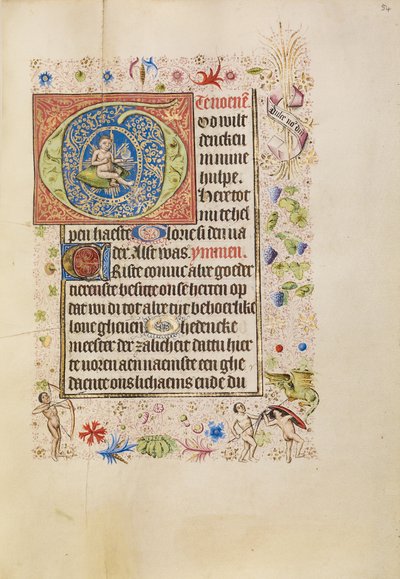 54
Te noenē
God wilt
dencken
in mine
hulpe.
Here tot
mi te hel
pen haeste Glorie si den va
der. Alst was. ymnen.
Criste comme alre goeder
tierenste besitte onse herten op
dat wi di tot alre tijt behoerlike
loue gheuen Ghedencke
meester der zalicheit dattu hier
te uoren aennaemste een ghe
daente ons lichaems ende du